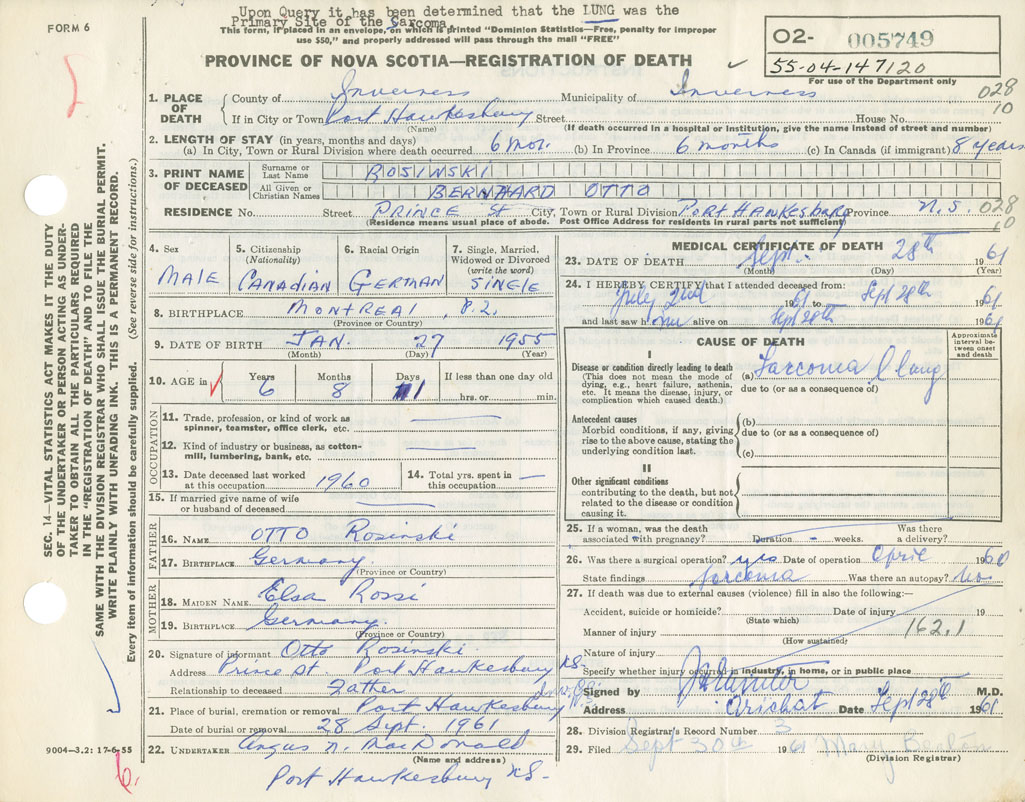 Upon Query it has been determined that the LUNG was the
Primary Site of the Sarcoma.
FORM 6
This form, if placed in an envelope, on which is printed "Dominion Statistics—Free, penalty for improper
use $50," and properly addressed will pass through the mail "FREE"
O2- 005749
55-04-147120
For use of the Department only
PROVINCE OF NOVA SCOTIA—REGISTRATION OF DEATH
1. PLACE OF DEATH County of Inverness Municipality of Inverness 028
If in City or Town Port Hawkesbury Street House No. 10
(Name) (If death occurred in a hospital or institution, give the name instead of street and number)
2. LENGTH OF STAY (in years, months and days)
(a) In City, Town or Rural Division where death occurred 6 mos. (b) In Province 6 months (c) In Canada (if immigrant) 8 years
3. PRINT NAME OF DECEASED Surname or Last Name ROSINSKI
All Given or Christian Names BERNHARD OTTO
RESIDENCE No. Street PRINCE St City, Town or Rural Division PORT HAWKESBURY Province N.S. 028
(Residence means usual place of abode. Post Office Address for residents in rural parts not sufficient) 10
4. Sex MALE
5. Citizenship (Nationality) CANADIAN
6. Racial Origin GERMAN
7. Single, Married, Widowed or Divorced (write the word) SINGLE
8. BIRTHPLACE MONTREAL, P.Q.
(Province or Country)
9. DATE OF BIRTH JAN. 27 1955
(Month) (Day) (Year)
10. AGE in Years 6 Months 8 Days 1 If less than one day old
hrs. or min.
OCCUPATION
11. Trade, profession, or kind of work as
spinner, teamster, office clerk, etc.
12. Kind of industry or business, as cotton-
mill, lumbering, bank, etc.
13. Date deceased last worked
at this occupation 1960
14. Total yrs. spent in
this occupation —
15. If married give name of wife
or husband of deceased
FATHER
16. NAME OTTO Rosinski
17. BIRTHPLACE Germany
(Province or Country)
MOTHER
18. MAIDEN NAME Elsa Rossi
19. BIRTHPLACE Germany
(Province or Country)
20. Signature of informant Otto Rosinski
Address Prince St Port Hawkesbury N.S.
Relationship to deceased Father
21. Place of burial, cremation or removal Port Hawkesbury N.S.
Date of burial or removal 28 Sept. 1961
22. UNDERTAKER Angus N. MacDonald
(Name and address)
Port Hawkesbury N.S.
MEDICAL CERTIFICATE OF DEATH
23. DATE OF DEATH Sept. 28th 1961
(Month) (Day) (Year)
24. I HEREBY CERTIFY that I attended deceased from:
July 2nd 1961 to Sept 28th 1961
and last saw him alive on Sept 28th 1961
CAUSE OF DEATH
Approximate interval between onset and death
I
Disease or condition directly leading to death
(This does not mean the mode of
dying, e.g., heart failure, asthenia,
etc. It means the disease, injury, or
complication which caused death.)
(a) Sarcoma lung
due to (or as a consequence of)
Antecedent causes
Morbid conditions, if any, giving
rise to the above cause, stating the
underlying condition last.
(b)
due to (or as a consequence of)
(c)
II
Other significant conditions
contributing to the death, but not
related to the disease or condition
causing it.
25. If a woman, was the death
associated with pregnancy? Duration - weeks. Was there
a delivery?
26. Was there a surgical operation? yes Date of operation April 1960
State findings Sarcoma Was there an autopsy? No
27. If death was due to external causes (violence) fill in also the following:—
Accident, suicide or homicide? Date of injury 19
(State which)
Manner of injury 162.1
(How sustained)
Nature of injury
Specify whether injury occurred in industry, in home, or in public place
Signed by M.D.
Address Arichat Date Sept 28th 1961
28. Division Registrar's Record Number 3
29. Filed Sept 30th 1961 Mary Beaton
(Division Registrar)
SEC. 14—VITAL STATISTICS ACT MAKES IT THE DUTY
OF THE UNDERTAKER OR PERSON ACTING AS UNDER-
TAKER TO OBTAIN ALL THE PARTICULARS REQUIRED
IN THE "REGISTRATION OF DEATH" AND TO FILE THE
SAME WITH THE DIVISION REGISTRAR WHO SHALL ISSUE THE BURIAL PERMIT.
WRITE PLAINLY WITH UNFADING INK. THIS IS A PERMANENT RECORD.
Every item of information should be carefully supplied. (See reverse side for instructions.)
9004—3.2: 17-6-55
6.